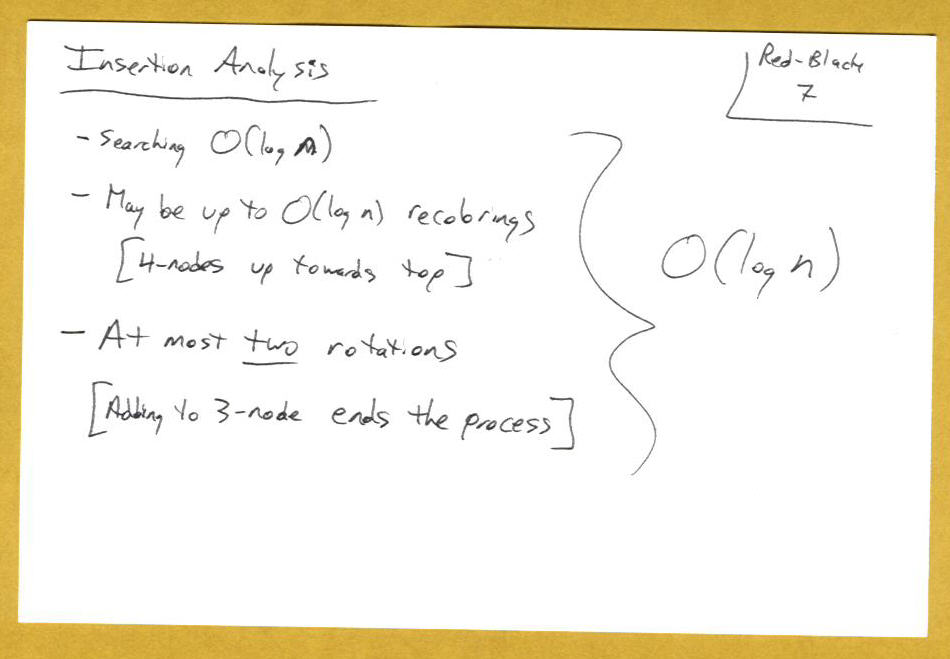 Insertion Analysis
Red-Black
7
- Searching O(log n)
- May be up to O(log n) recolorings
[4-nodes up towards top]
- At most two rotations
[Adding to 3-node ends the process]
O(log n)